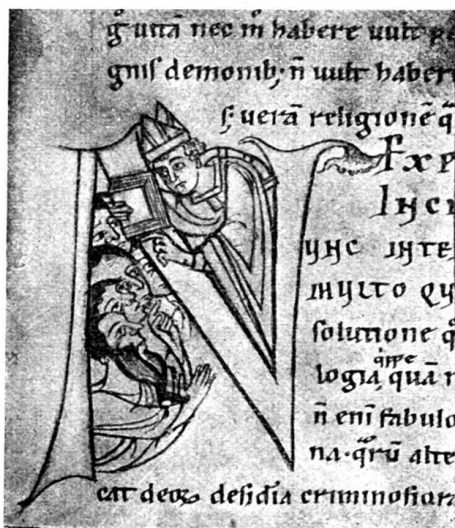 g uitā nec m̄ habere uult pe
gnis demonib; n̄ uult habere
s; uerā religionē q̄
Exp
Inci
UNC INTE
MULTO QU
solutione q̄
logia, quā n
n̄ eni fabulo
na. qr̄u alte
cat deoꝝ desidia criminosiora